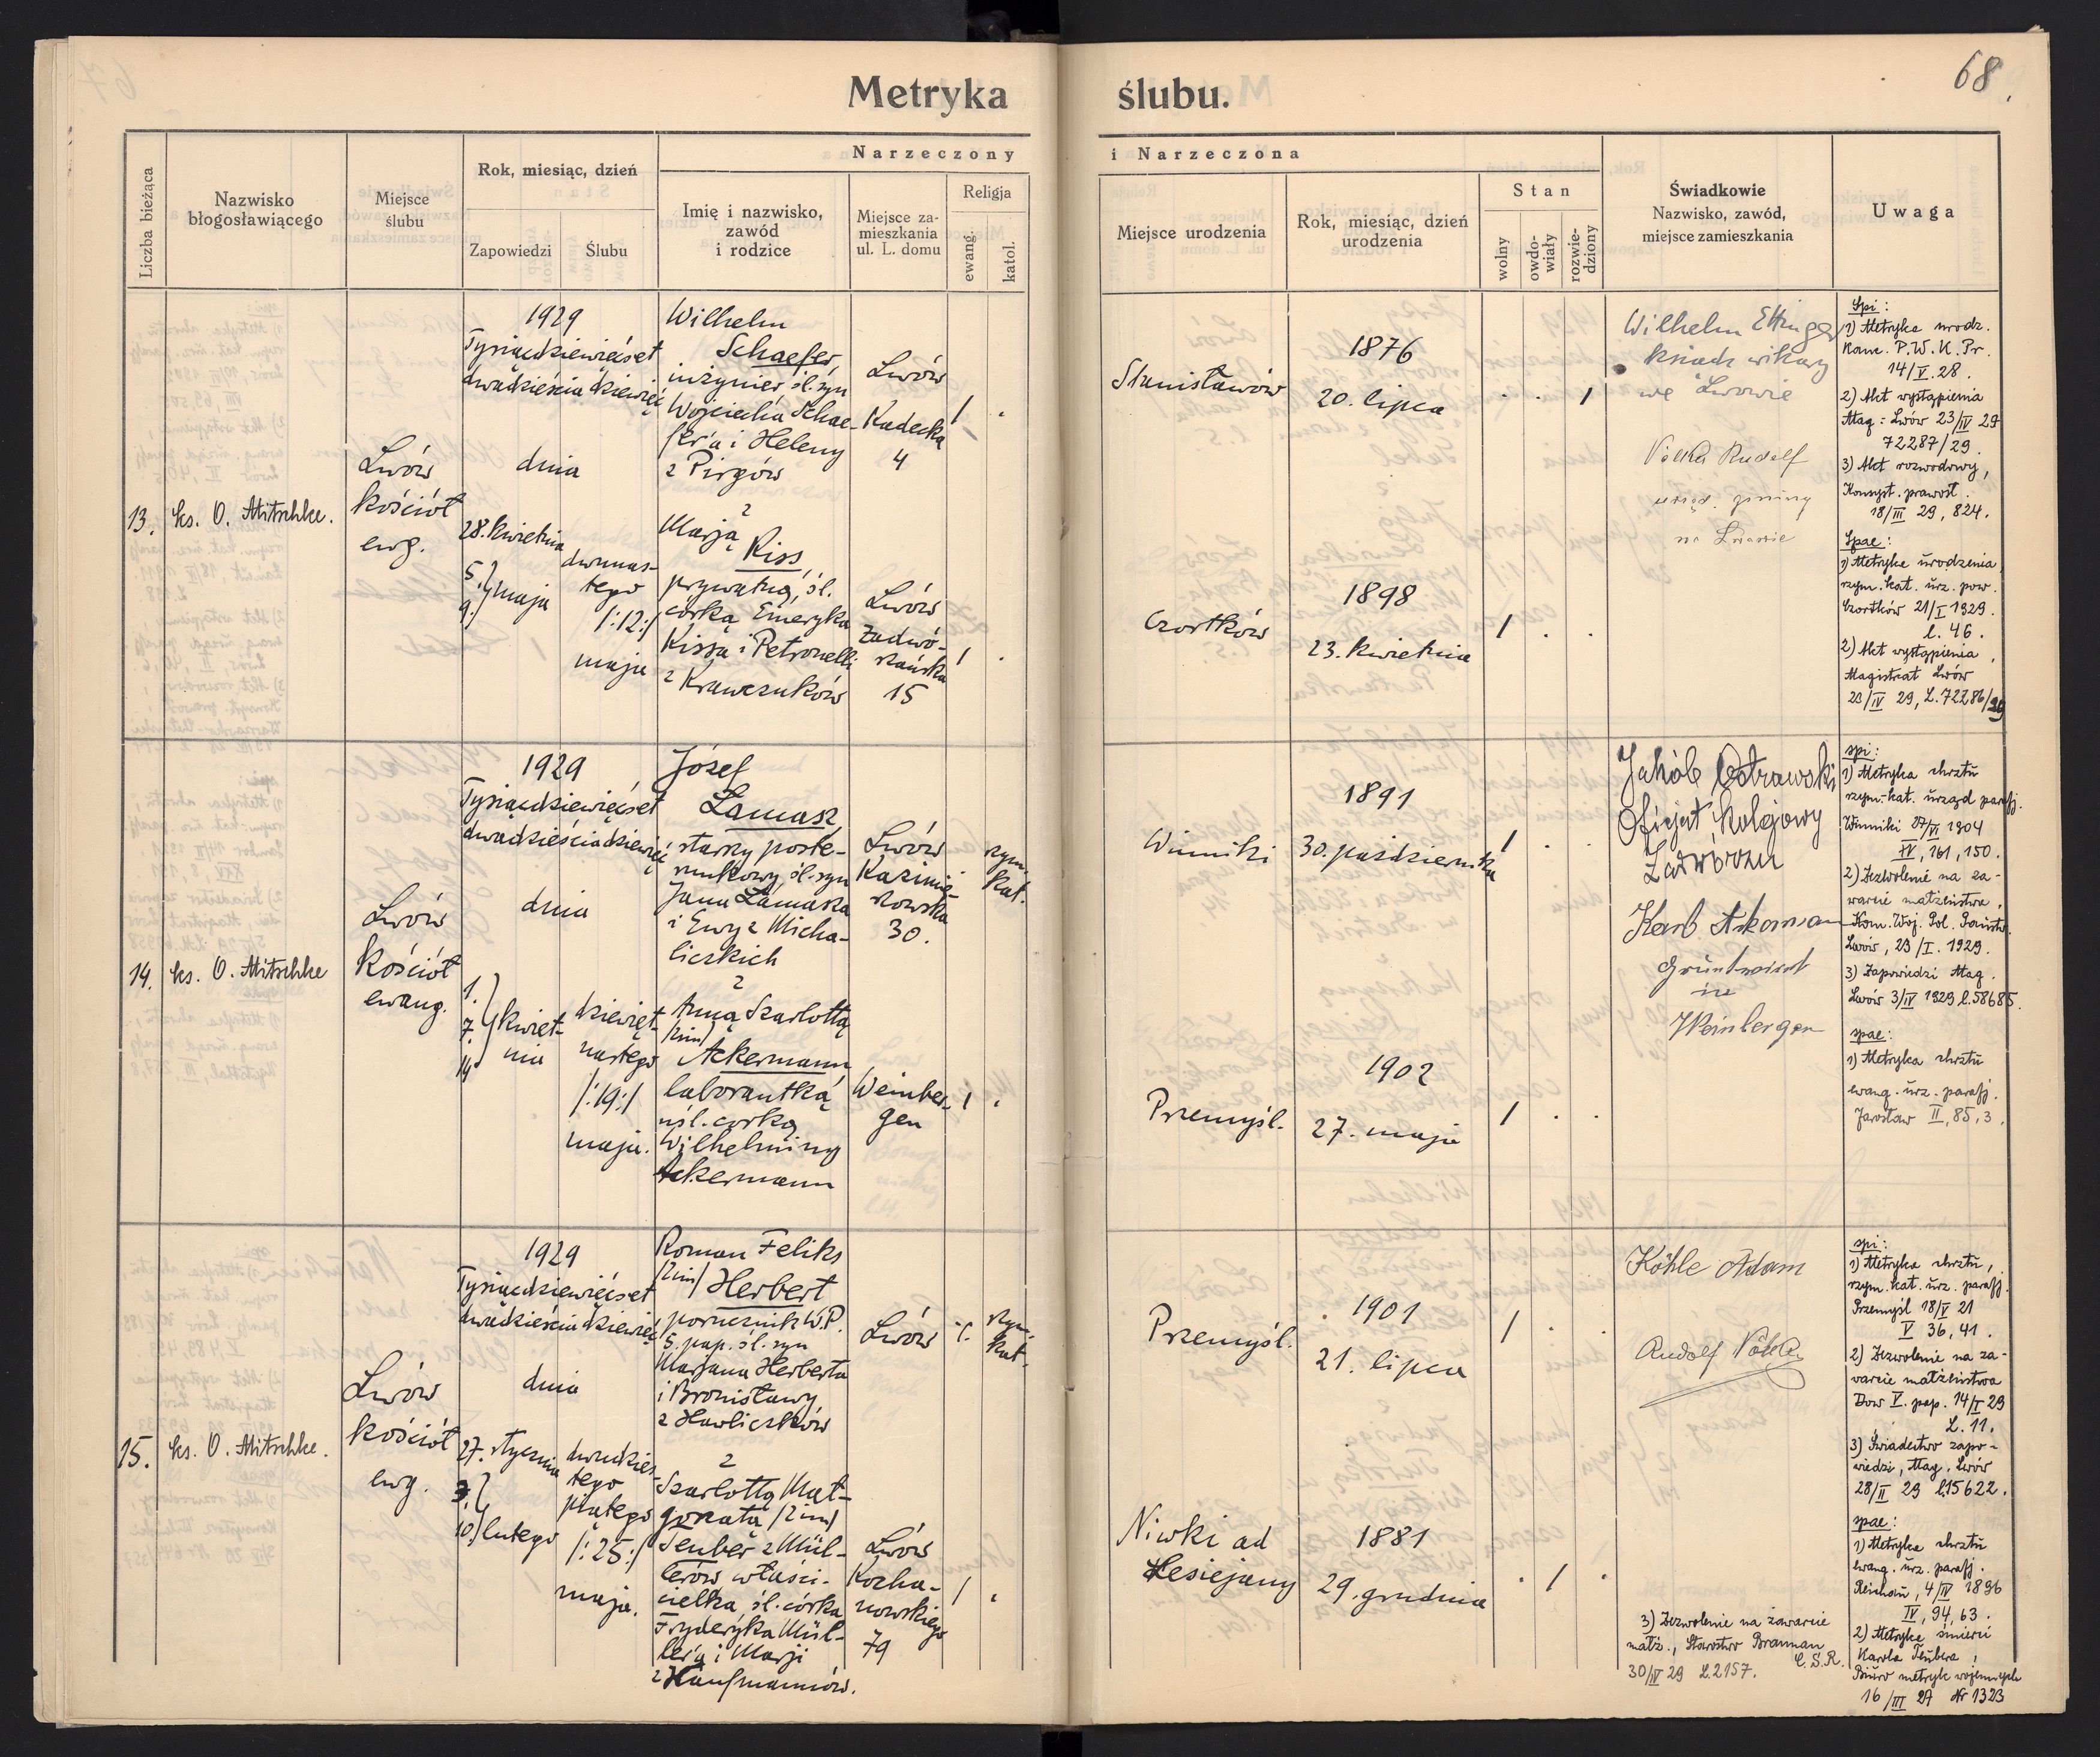 Metryka ślubu.
68
Liczba bieżąca
Nazwisko
błogosławiącego
Miejsce
ślubu
Rok, miesiąc, dzień
Zapowiedzi
Ślubu
Narzeczony
Imię i nazwisko,
zawód
i rodzice
Miejsce za-
mieszkania
ul. L. domu
Religja
ewang.
katol.
i Narzeczona
Miejsce urodzenia
Rok, miesiąc, dzień
urodzenia
Stan
wolny
owdo-
wiały
rozwie-
dziony
Świadkowie
Nazwisko, zawód,
miejsce zamieszkania
Uwaga
13.
ks. O. Mitschke.
Lwów
kościół
ewg.
1929
Tysiącdziewięćset
dwadzieścia dziewięć
dnia
28. kwietnia
5.
9. maja
dwunas-
tego
/:12:/
maja
Wilhelm
Schaefer,
inżynier śl. syn
Wojciecha Schae-
fer'a i Heleny
z Pirgów
z
Marją
Kiss,
prywatną, śl.
córką Emeryka
Kissa i Petronelli
z Krawczuków
Lwów
Kadecka
4
Lwów
Zadwó-
rzańska
15
Stanisławów
1876
20. lipca
Czortków
1898
23. kwietnia
Wilhelm Ettinger
ksiądz wikary
we Lwowie
Rudolf
Spi:
1) Metryka urodz.
Kom. P.W.K. Pr.
14/V. 28.
2) Akt wystąpienia
Mag: Lwów 23/IV 29
72287/29.
3) Akt rozwodowy,
Konsyst. prawosł.
18/III 29, 824.
Spae:
1) Metryka urodzenia
rzym. kat. urz. pow.
Czortków 21/I 1929.
l. 46.
2) Akt wystąpienia,
Magistrat Lwów
23/IV 29, L. 72286/29
14.
ks. O. Mitschke
Lwów
kościół
ewang.
1929
Tysiącdziewięćset
dwadzieścia dziewięć
dnia
1.
7. kwiet-
14 nia
dziewięt-
nastego
/:19:/
maja.
Józef
Łamasz
starszy poste-
runkowy, śl. syn
Jana Łamasza
i Ewy z Micha-
liczkich
z
Anną Szarlottą
/2im/
Ackermann,
laborantką
nśl. córką
Wilhelminy
Ackermann
Lwów
Kazimie-
rowska
30.
rzym.
kat.
Weinber-
gen
Winniki
1891
30. października
Przemyśl.
1902
27. maja
Jakób Ostrowski
Oficjał kolejowy
Zadwórzu
Karl Akerman
Gründwirt
in
Weinbergen
spi:
1) Metryka chrztu
rzym.-kat. urząd parafj.
Winniki 27/VI 1904
IV, 161, 150.
2) Zezwolenie na za-
warcie małżeństwa,
Kom. Woj. Pol. Państw.
Lwów, 23/I. 1929.
3) Zapowiedzi Mag.
Lwów 3/IV 1929 l. 58685.
spae:
1) Metryka chrztu
ewang. urz. parafj.
Jarosław II, 85, 3.
15.
ks. O. Mitschke.
Lwów
kościół
ewg.
1929
Tysiącdziewięćset
dwadzieścia dziewięć
dnia
27. stycznia
3.
10. lutego
dwudzies-
tego
piątego
/:25:/
maja.
Roman Feliks
/2im/ Herbert
porucznik W.P.
5. pap. śl. syn
Marjana Herberta
i Bronisławy
z Hawliczków
z
Szarlottą Mał-
gorzatą /2im/
Teuber z Mül-
lerów właści-
cielka, śl. córka
Fryderyka Mül-
ler'a i Marji
z Kaufmannów.
Lwów
rzym.
kat.
Lwów
Kocha-
nowskiego
79
Przemyśl.
1901
21. lipca
Niwki ad
1881
29. grudnia
Köhle Adam
Rudolf Völker
3) Zezwolenie na zawarcie
małż., Starostwo Braunau
Č.S.R.
30/IV 29 L. 2157.
spi:
1) Metryka chrztu,
rzym. kat. urz. parafj.
Przemyśl 18/V 21
V 36, 41.
2) Zezwolenie na za-
warcie małżeństwa
Dow V. pap. 14/I 29
L. 11.
3) Świadectwo zapo-
wiedzi, Mag. Lwów
28/II 29 l. 15622.
spae:
1) Metryka chrztu
ewang. urz. parafj.
Reichau, 4/IV 1896
IV, 94, 63.
2) Metryka śmierci
Karola Teubera,
Biuro metryk wojennych
16/III 27 Nr 1323